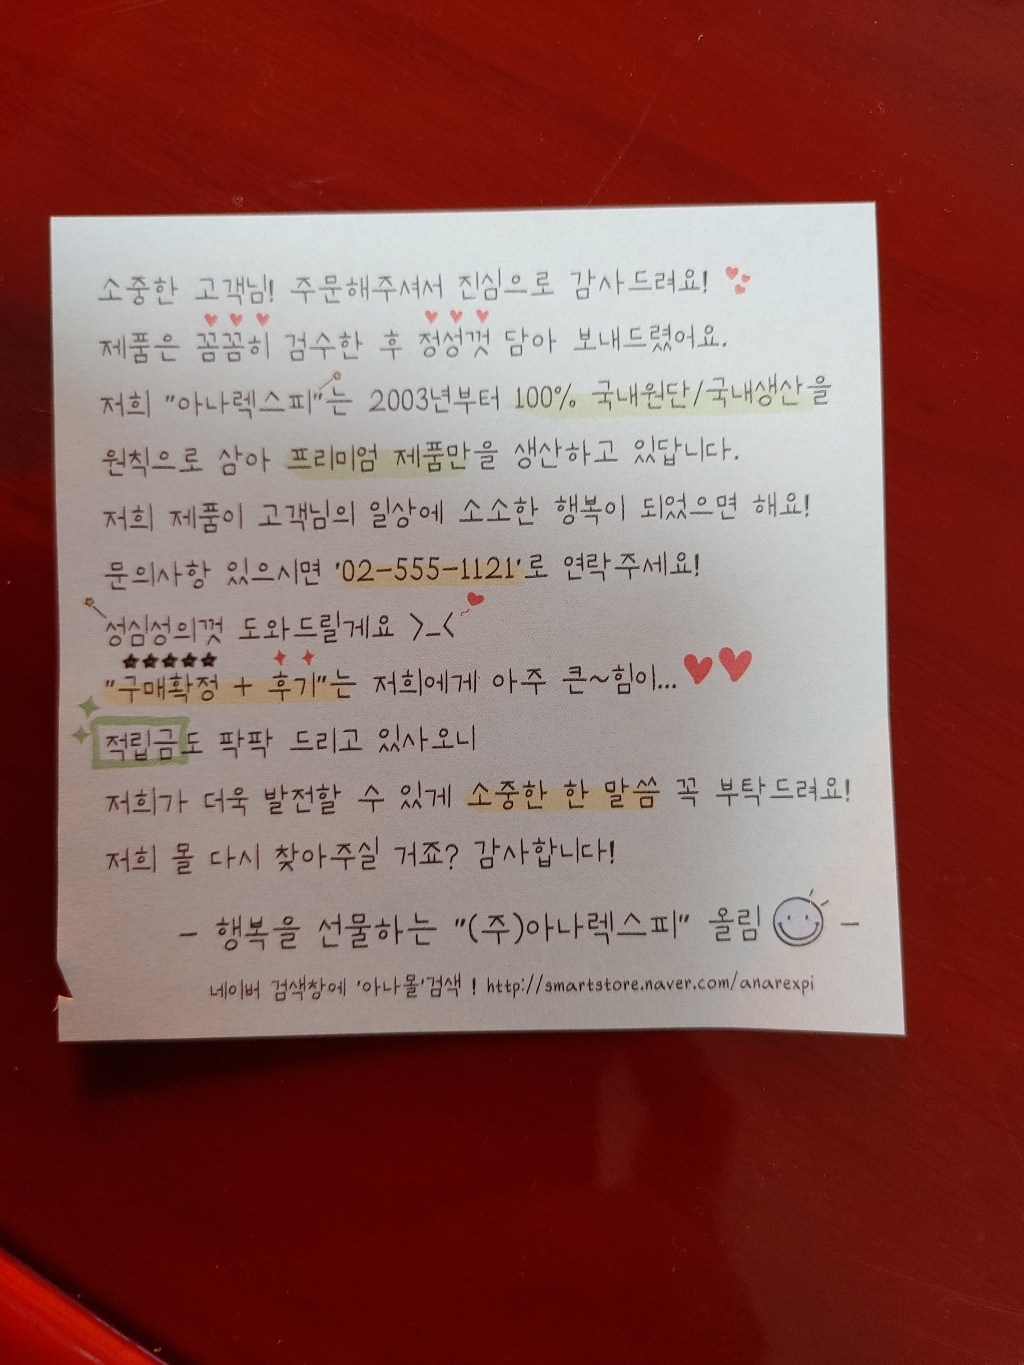 소중한 고객님! 주문해주셔서 진심으로 감사드려요!
제품은 꼼꼼히 검수한 후 정성껏 담아 보내드렸어요.
저희 "아나렉스피"는 2003년부터 100% 국내원단/국내생산을
원칙으로 삼아 프리미엄 제품만을 생산하고 있답니다.
저희 제품이 고객님의 일상에 소소한 행복이 되었으면 해요!
문의사항 있으시면 '02-555-1121'로 연락주세요!
성심성의껏 도와드릴게요 >_<
★★★★★
"구매확정 + 후기"는 저희에게 아주 큰~힘이...
적립금도 팍팍 드리고 있사오니
저희가 더욱 발전할 수 있게 소중한 한 말씀 꼭 부탁드려요!
저희 몰 다시 찾아주실 거죠? 감사합니다!
- 행복을 선물하는 "(주)아나렉스피" 올림 -
네이버 검색창에 '아나몰'검색 ! http://smartstore.naver.com/anarexpi